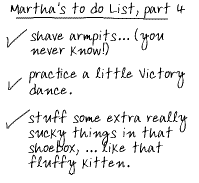 Martha's to do List, part 4
shave armpits... (you
never know!)
practice a little victory
dance.
stuff some extra really
sucky things in that
shoebox, ... like that
fluffy kitten.